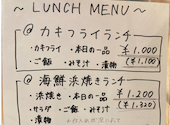 ~ LUNCH MENU ~
@ カキフライランチ
・カキフライ ・本日の一品 ¥1.000
・ご飯 ・みそ汁 ・漬物 (¥1,100)
@ 海鮮浜焼きランチ
・浜焼き ・本日の一品 ¥1.200
・サラダ ・ご飯 ・みそ汁 (¥1.320)
・漬物